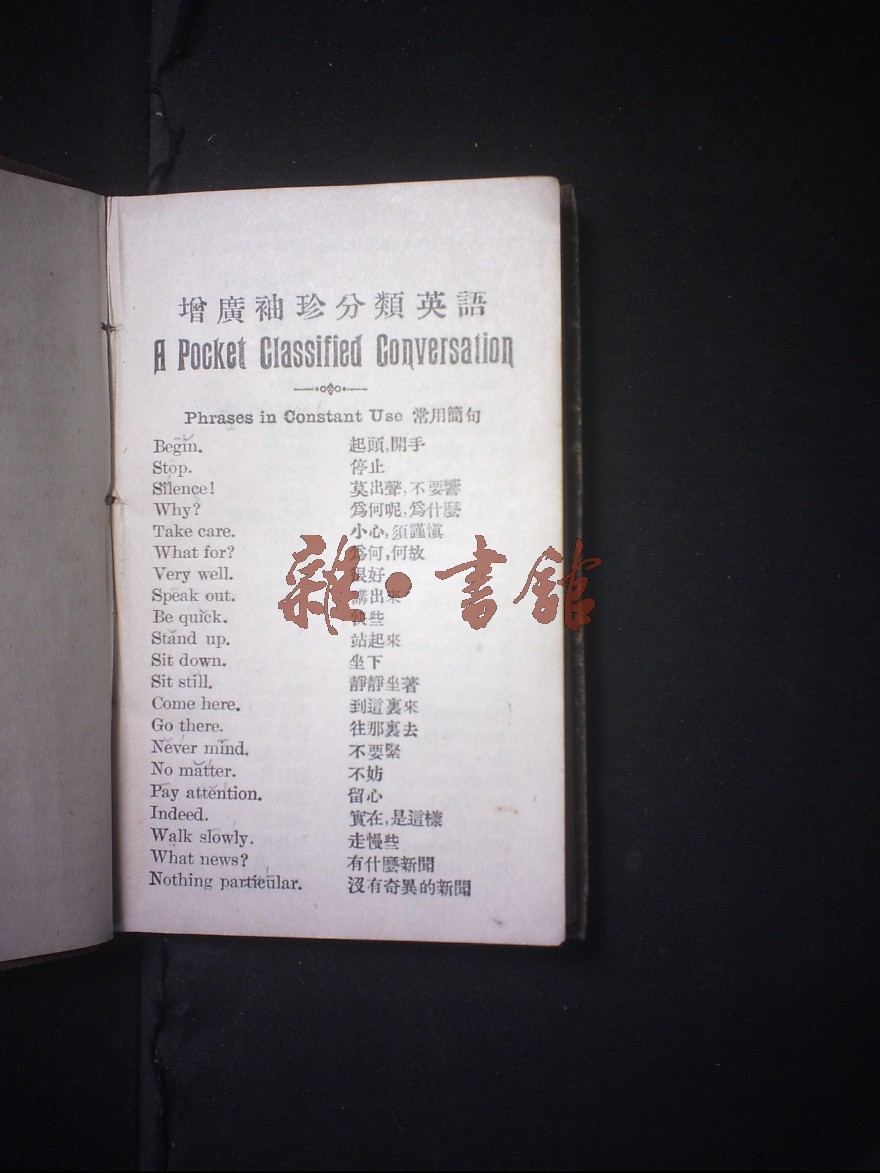 增廣袖珍分類英語
A Pocket Classified Conversation
Phrases in Constant Use 常用簡句
Begin. 起頭,開手
Stop. 停止
Silence! 莫出聲,不要響
Why? 爲何呢,爲什麼
Take care. 小心,須謹慎
What for? 爲何,何故
Very well. 很好
Speak out. 講出來
Be quick. 快些
Stand up. 站起來
Sit down. 坐下
Sit still. 靜靜坐著
Come here. 到這裏來
Go there. 往那裏去
Never mind. 不要緊
No matter. 不妨
Pay attention. 留心
Indeed. 實在,是這樣
Walk slowly. 走慢些
What news? 有什麼新聞
Nothing particular. 沒有奇異的新聞
雜·書館